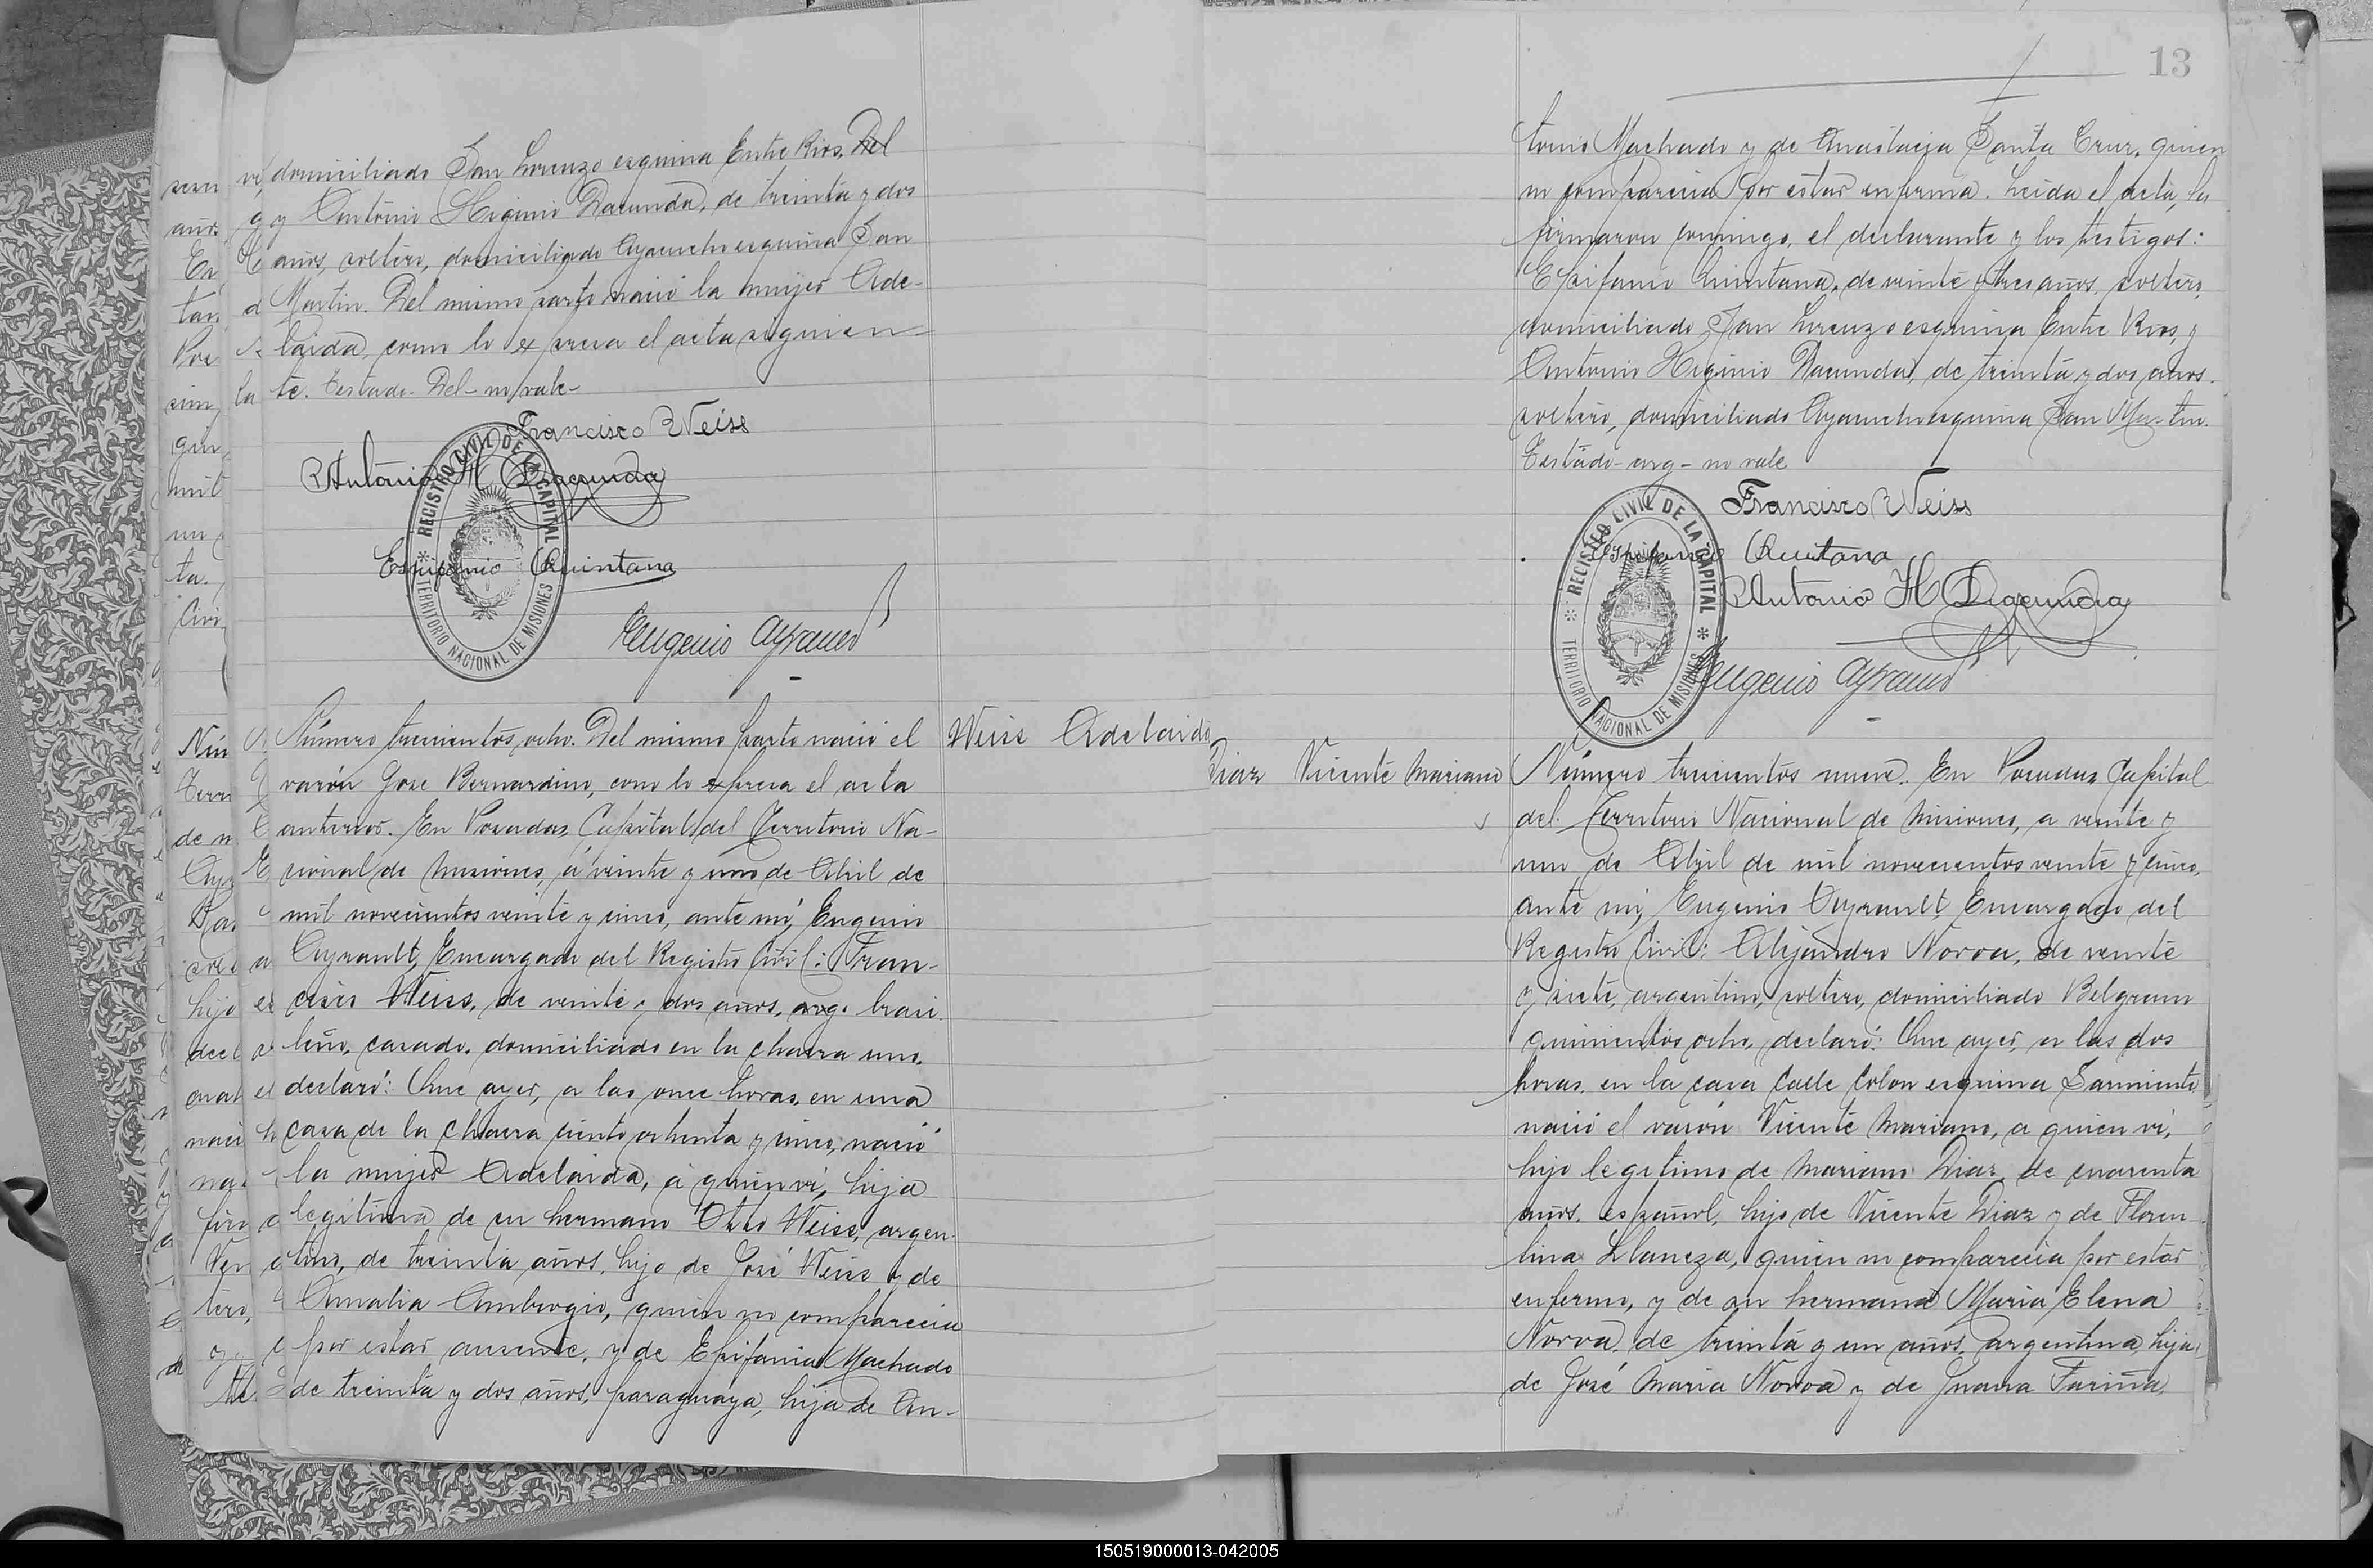 domiciliado San Lorenzo esquina Entre Rios. Del
y Antonio Higinio Dacunda, de treinta y dos
años, soltero, domiciliado Ayacucho esquina San
Martin. Del mismo parto nació la mujer Ade-
laida, como lo expresa el acta siguien-
te. Testado- Del- no vale-
Francisco Weiss
Antonio H Dacunda
Epifanio Quintana
Eugenio Ayrault
REGISTRO CIVIL DE LA CAPITAL
TERRITORIO NACIONAL DE MISIONES
Número trecientos ocho. Del mismo parto nació el
varón Jose Bernardino, como lo expresa el acta
anterior. En Posadas, Capital del Territorio Na-
cional de Misiones, á veinte y uno de Abril de
mil novecientos veinte y cinco, ante mí, Eugenio
Ayrault, Encargado del Registro Civil: Fran-
cisco Weiss, de veinte y dos años, arg. brasi-
leño, casado, domiciliado en la chacra uno,
declaró: Que ayer, a las once horas, en una
casa de la chacra ciento ochenta y cinco, nació
la mujer Adelaida, á quien ví, hija
legítima de su hermano Otto Weiss, argen-
tino, de treinta años, hijo de José Weiss y de
Amalia Ambrogio, quien no comparecia
por estar ausente, y de Epifania Machado
de treinta y dos años, paraguaya, hija de An-
Weiss Adelaida
13
tonio Machado y de Anastacia Santa Cruz, quien
no comparecia por estar enferma. Leida el acta, la
firmaron conmigo, el declarante y los testigos:
Epifanio Quintana, de veinte y tres años, soltero,
domiciliado San Lorenzo esquina Entre Rios, y
Antonio Higinio Dacunda, de treinta y dos años,
soltero, domiciliado Ayacucho esquina San Martin.
Testado- arg- no vale
Francisco Weiss
Epifanio Quintana
Antonio H Dacunda
Eugenio Ayrault
REGISTRO CIVIL DE LA CAPITAL
TERRITORIO NACIONAL DE MISIONES
Diaz Vicente Mariano
Número trecientos nueve. En Posadas Capital
del Territorio Nacional de Misiones, a veinte y
uno de Abril de mil novecientos veinte y cinco,
ante mi, Eugenio Ayrault, Encargado del
Registro Civil: Alejandro Novoa, de veinte
y siete, argentino, soltero, domiciliado Belgrano
quinientos ocho, declaró: Que ayer, a las dos
horas, en la casa Calle Colon esquina Sarmiento
nació el varón Vicente Mariano, a quien ví,
hijo legitimo de Mariano Diaz, de cuarenta
años, español, hijo de Vicente Diaz y de Floren-
tina Llaneza, quien no comparecia por estar
enfermo, y de su hermana Maria Elena
Novoa, de treinta y un años, argentina, hija
de José Maria Novoa y de Juana Fariña,
150519000013-042005